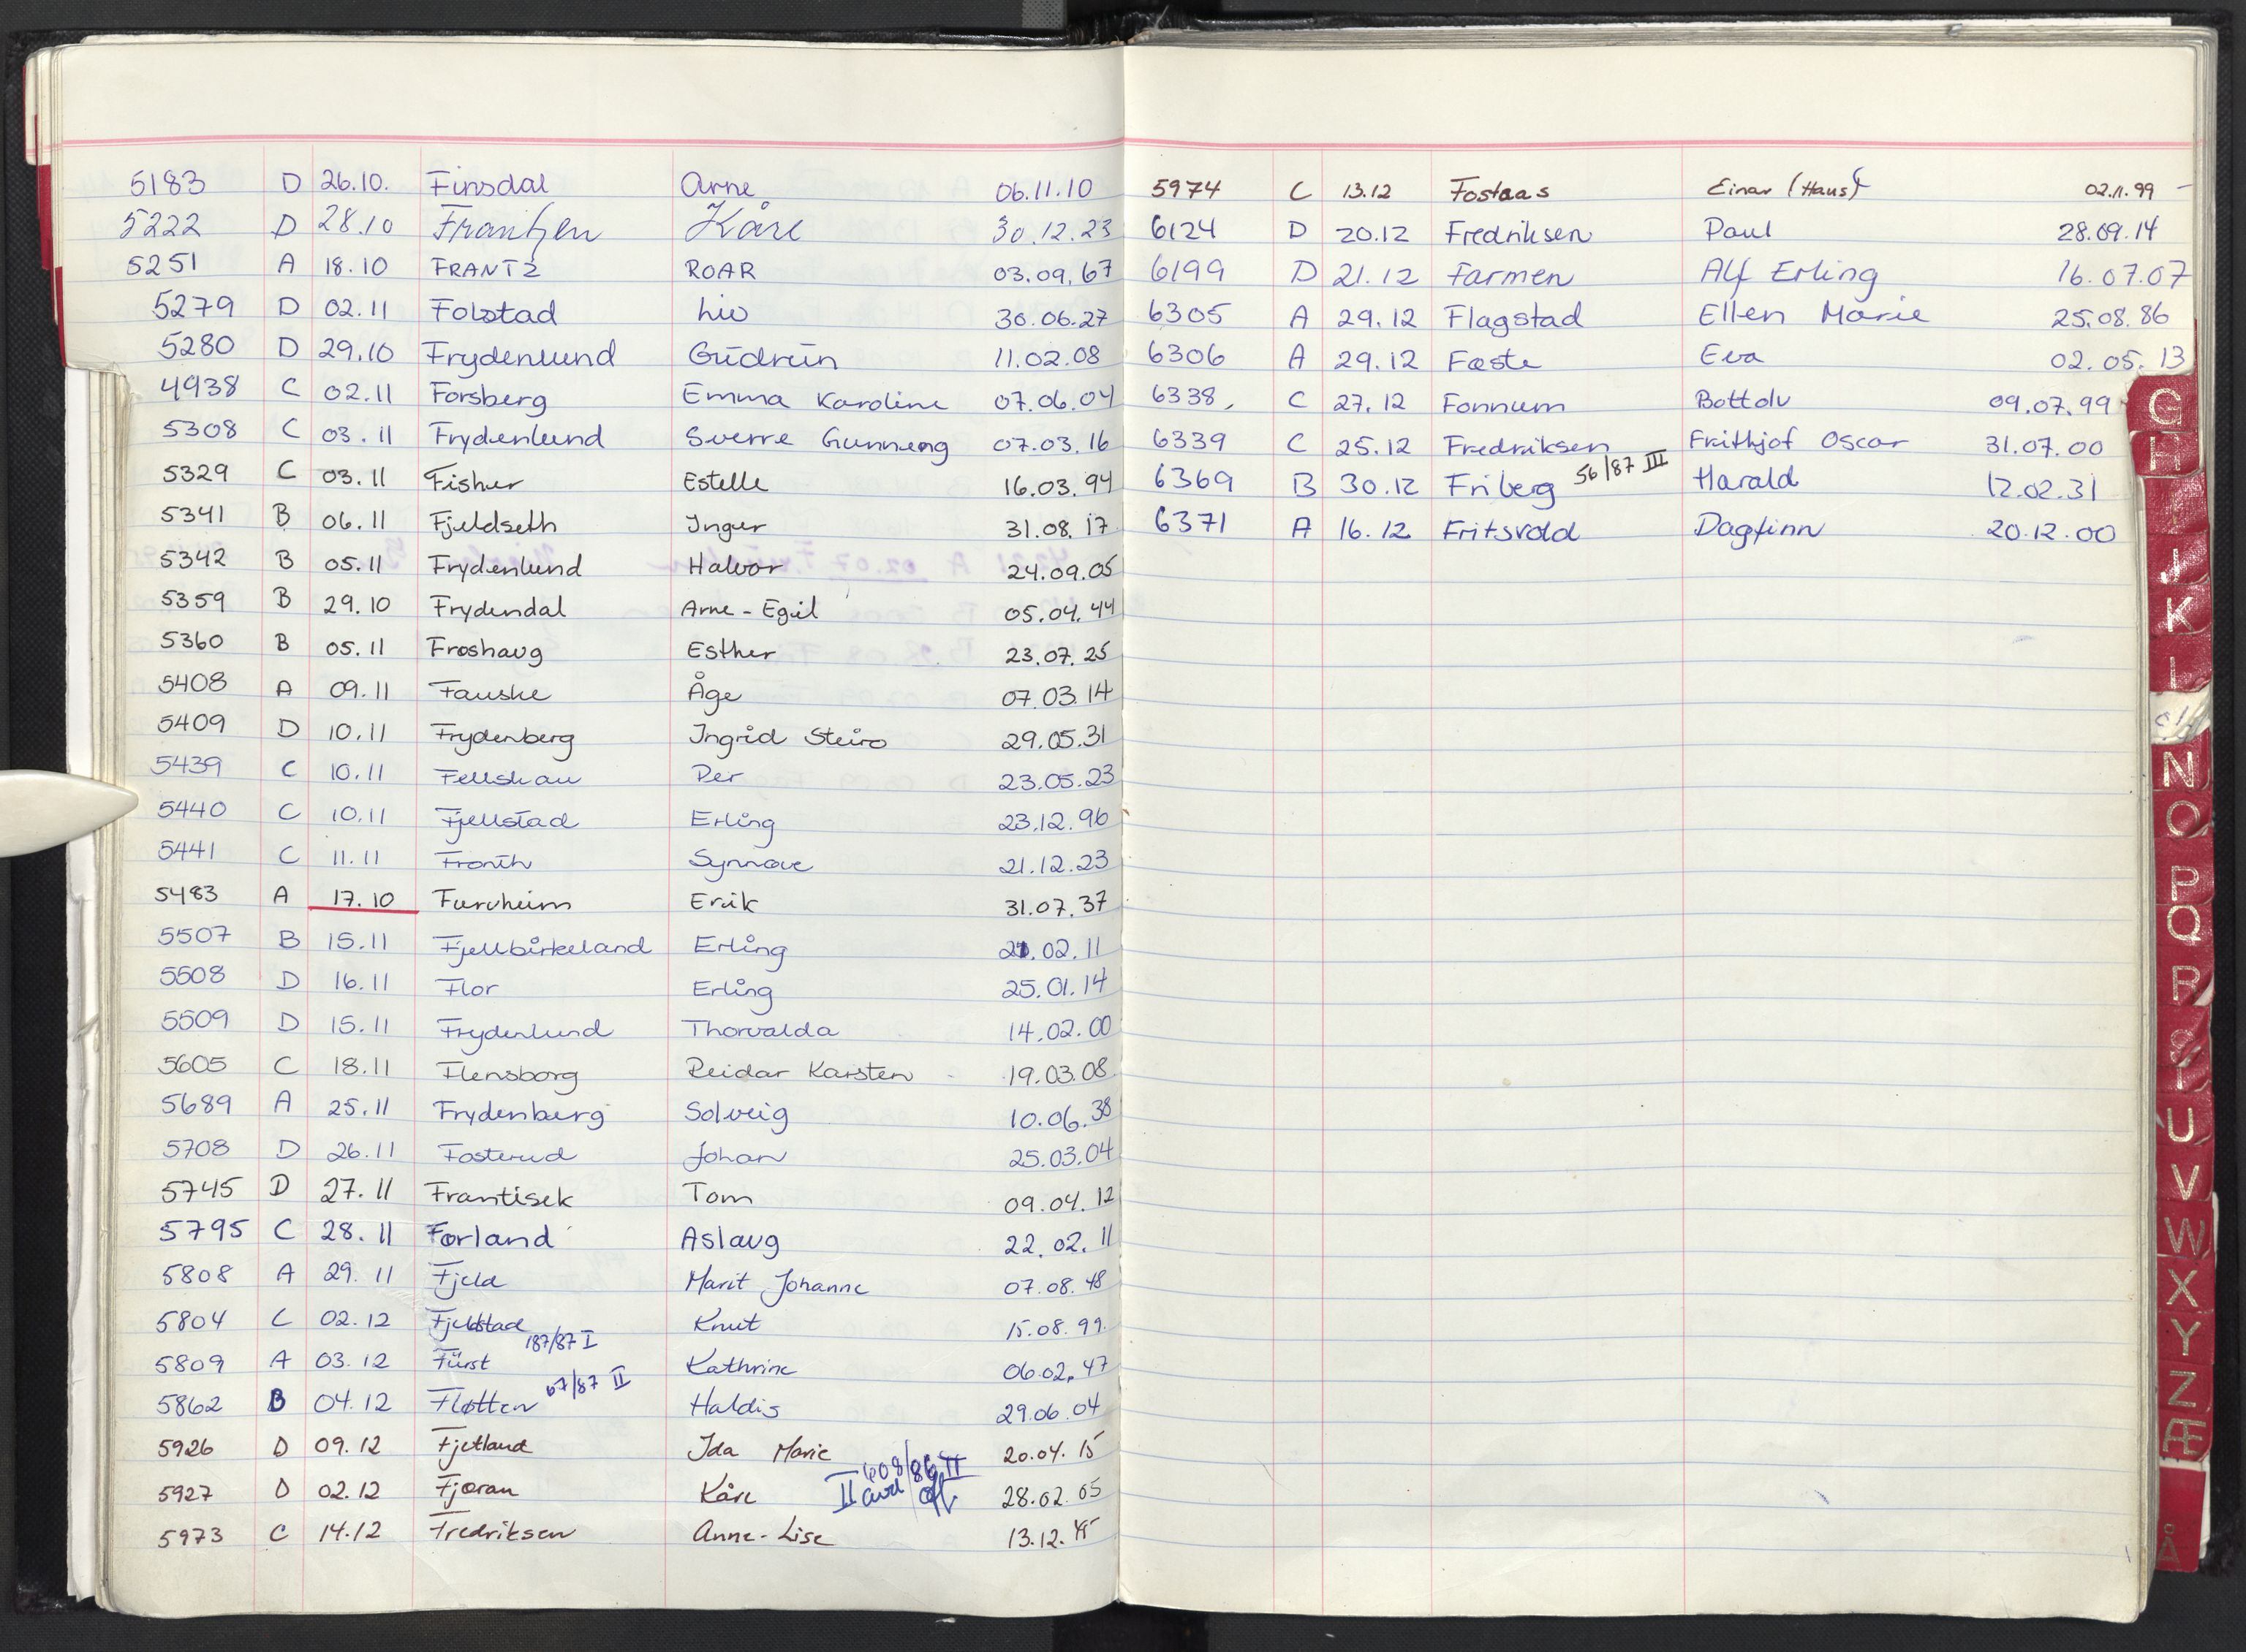 5183 D 26.10. Finsdal Arne 06.11.10
5222 D 28.10 Frantzen Kåre 30.12.23
5251 A 18.10 FRANTZ ROAR 03.09.67
5279 D 02.11 Folstad Liv 30.06.27
5280 D 29.10 Frydenlund Gudrun 11.02.08
4938 C 02.11 Forsberg Emma Karoline 07.06.04
5308 C 03.11 Frydenlund Sverre Gunneng 07.03.16
5329 C 03.11 Fisher Estelle 16.03.94
5341 B 06.11 Fjeldseth Inger 31.08.17
5342 B 05.11 Frydenlund Halvor 24.09.05
5359 B 29.10 Frydendal Arne-Egil 05.04.44
5360 B 05.11 Froshaug Esther 23.07.25
5408 A 09.11 Fauske Åge 07.03.14
5409 D 10.11 Frydenberg Ingrid Steiro 29.05.31
5439 C 10.11 Fellskau Per 23.05.23
5440 C 10.11 Fjellstad Erling 23.12.96
5441 C 11.11 Fronth Synnøve 21.12.23
5483 A 17.10 Furuheim Erik 31.07.37
5507 B 15.11 Fjellbirkeland Erling 21.02.11
5508 D 16.11 Flor Erling 25.01.14
5509 D 15.11 Frydenlund Thorvalda 14.02.00
5605 C 18.11 Flensborg Reidar Karsten 19.03.08
5689 A 25.11 Frydenberg Solveig 10.06.38
5708 D 26.11 Fosterud Johan 25.03.04
5745 D 27.11 Frantisek Tom 09.04.12
5795 C 28.11 Førland Aslaug 22.02.11
5808 A 29.11 Fjeld Marit Johanne 07.08.48
5804 C 02.12 Fjeldstad Knut 15.08.99
187/87 I
5809 A 03.12 Fürst Kathrine 06.02.47
5862 B 04.12 Fløtten 67/87 II Haldis 29.06.04
5926 D 09.12 Fjetland Ida Marie 20.04.15
408/86 II
5927 D 02.12 Fjæran Kåre II avd 28.02.05
5973 C 14.12 Fredriksen Anne-Lise 13.12.45
5974 C 13.12 Fostaas Einar (Haus) 02.11.99 -
6124 D 20.12 Fredriksen Paul 28.09.14
6199 D 21.12 Farmen Alf Erling 16.07.07
6305 A 29.12 Flagstad Ellen Marie 25.08.86
6306 A 29.12 Fæste Eva 02.05.13
6338, C 27.12 Fonnum Bottolv 09.07.99
6339 C 25.12 Fredriksen Frithjof Oscar 31.07.00
6369 B 30.12 Friberg 56/87 III Harald 12.02.31
6371 A 16.12 Fritsvold Dagfinn 20.12.00
G
H
J
K
L
N
O
P
Q
R
S
U
V
W
X
Y
Z
Æ
Å